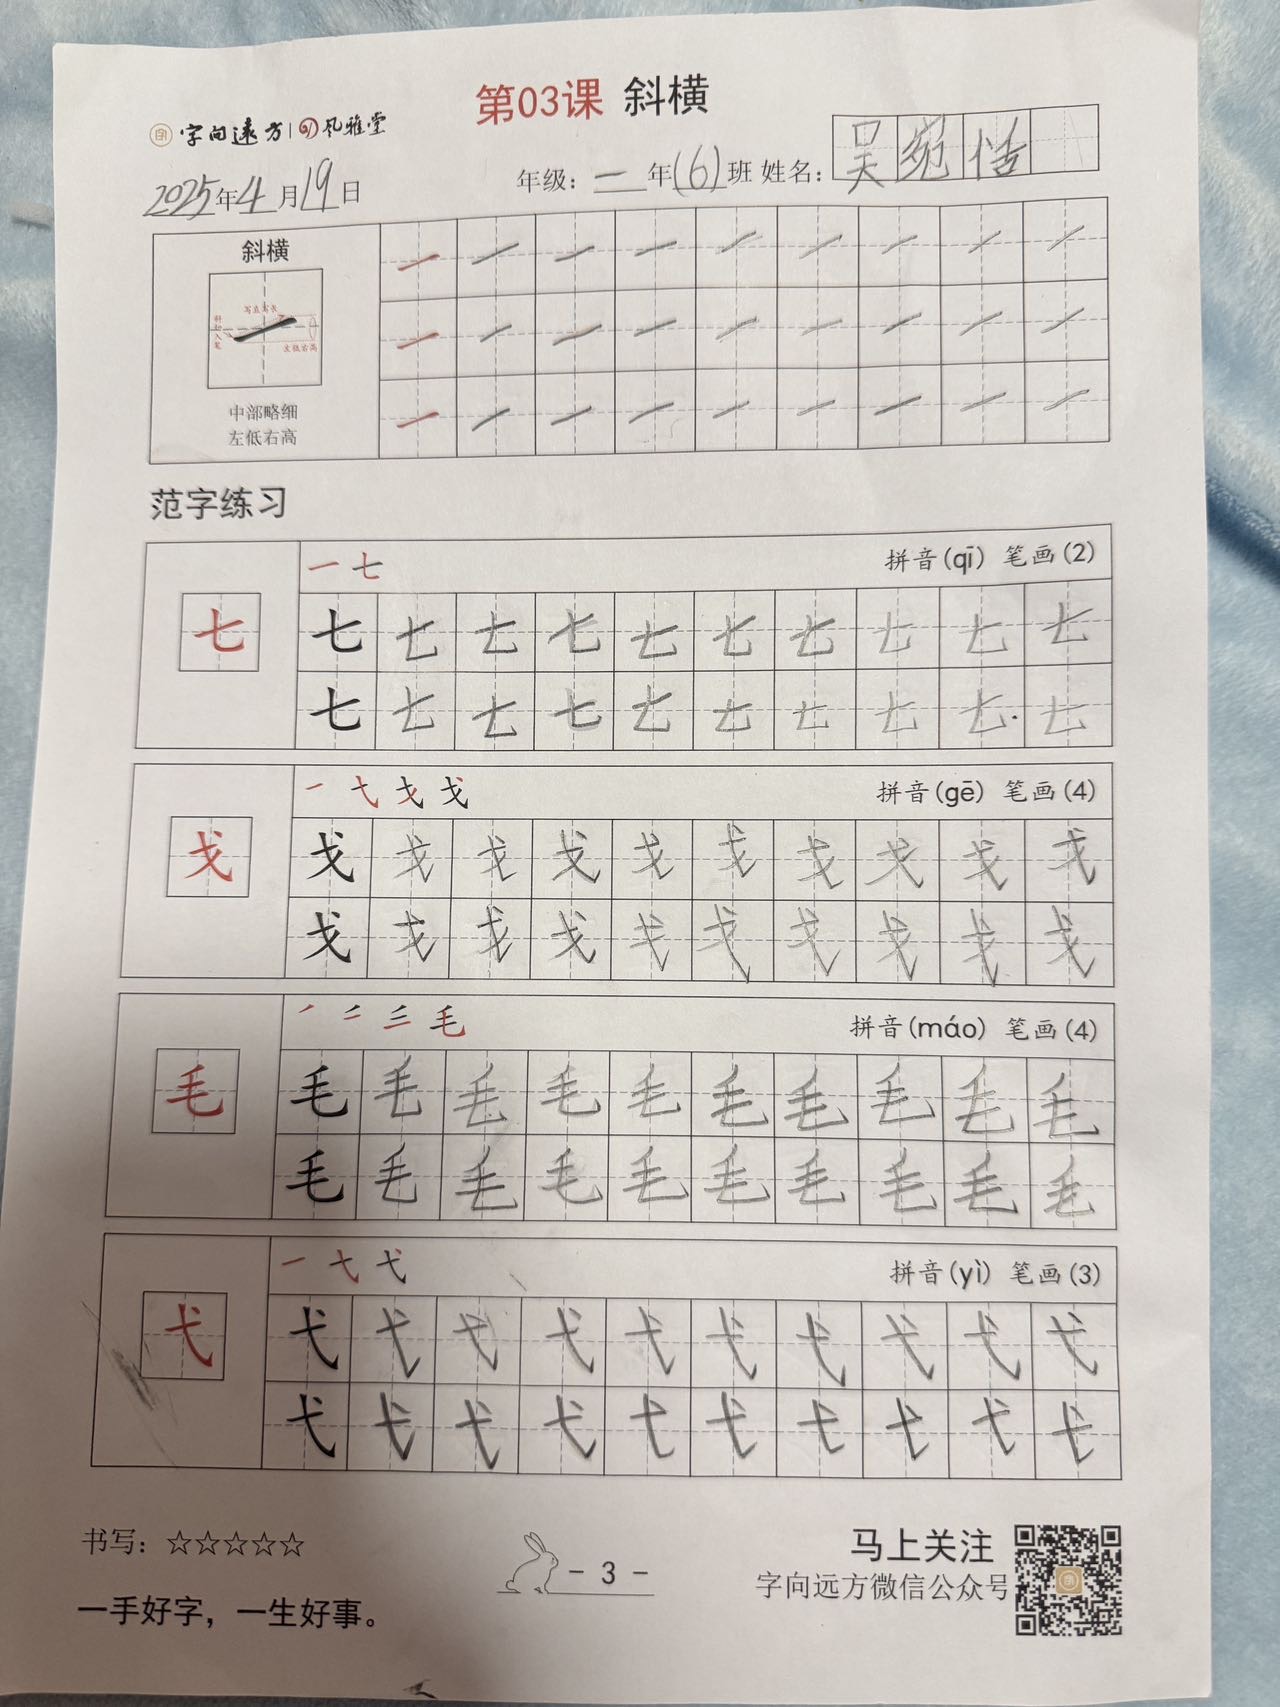 第03课 斜横
字向远方 | 风雅堂
2025年4月19日 年级：一年(6)班 姓名：吴宛恬
斜横
写直写长
斜切入笔
左低右高
中部略细
左低右高
范字练习
一 七 拼音(qī) 笔画(2)
七 七 七 七 七 七 七 七 七 七 七
七 七 七 七 七 七 七 七 七 七
一 弋 戈 戈 拼音(gē) 笔画(4)
戈 戈 戈 戈 戈 戈 戈 戈 戈 戈 戈
戈 戈 戈 戈 戈 戈 戈 戈 戈 戈
㇒ 二 三 毛 拼音(máo) 笔画(4)
毛 毛 毛 毛 毛 毛 毛 毛 毛 毛 毛
毛 毛 毛 毛 毛 毛 毛 毛 毛 毛
一 七 弋 拼音(yì) 笔画(3)
弋 弋 弋 弋 弋 弋 弋 弋 弋 弋 弋
弋 弋 弋 弋 弋 弋 弋 弋 弋 弋
书写：☆☆☆☆☆
一手好字，一生好事。
- 3 -
马上关注
字向远方微信公众号